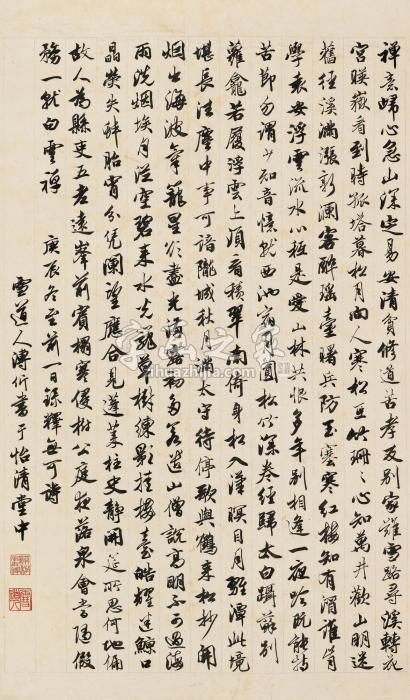 禪意歸心急山深定易安清貧修道苦孝友別家難雪路尋溪轉花
宮暎嶽看到時孤塔暮松月向人寒 松亘竹珊珊心知萬井歡山明迷
舊徑溪滿漲新瀾客醉瑤臺曙兵防玉塞寒紅樓知有酒誰肯
學袁安 浮雲流水心秪是愛山林共恨多年別相逢一夜吟既能持
苦節勿謂少知音憶就西池宿月圓松竹深 卷經歸太白躡蘚別
蘿龕若履浮雲上須看積翠南倚身松入漢瞑目月離潭此境
堪長往塵中事可諳 隴城秋月滿太守待停歌與鶴來松杪開
烟出海波氣籠星欲盡光滿露初多若造山僧說高明不可過 海
雨洗烟埃月從空碧來水光籠草樹練影挂樓臺皓耀迷鯨口
晶熒失蚌胎宵分凭闌望應合見蓬萊 柱史靜開筵所思何地偏
故人為縣吏五老遠峯前賓榻寒侵樹公庭夜落泉會當陽假
務一就白雲禪 庚辰冬至前一日錄釋無可詩
雪道人溥伒書于怡清堂中